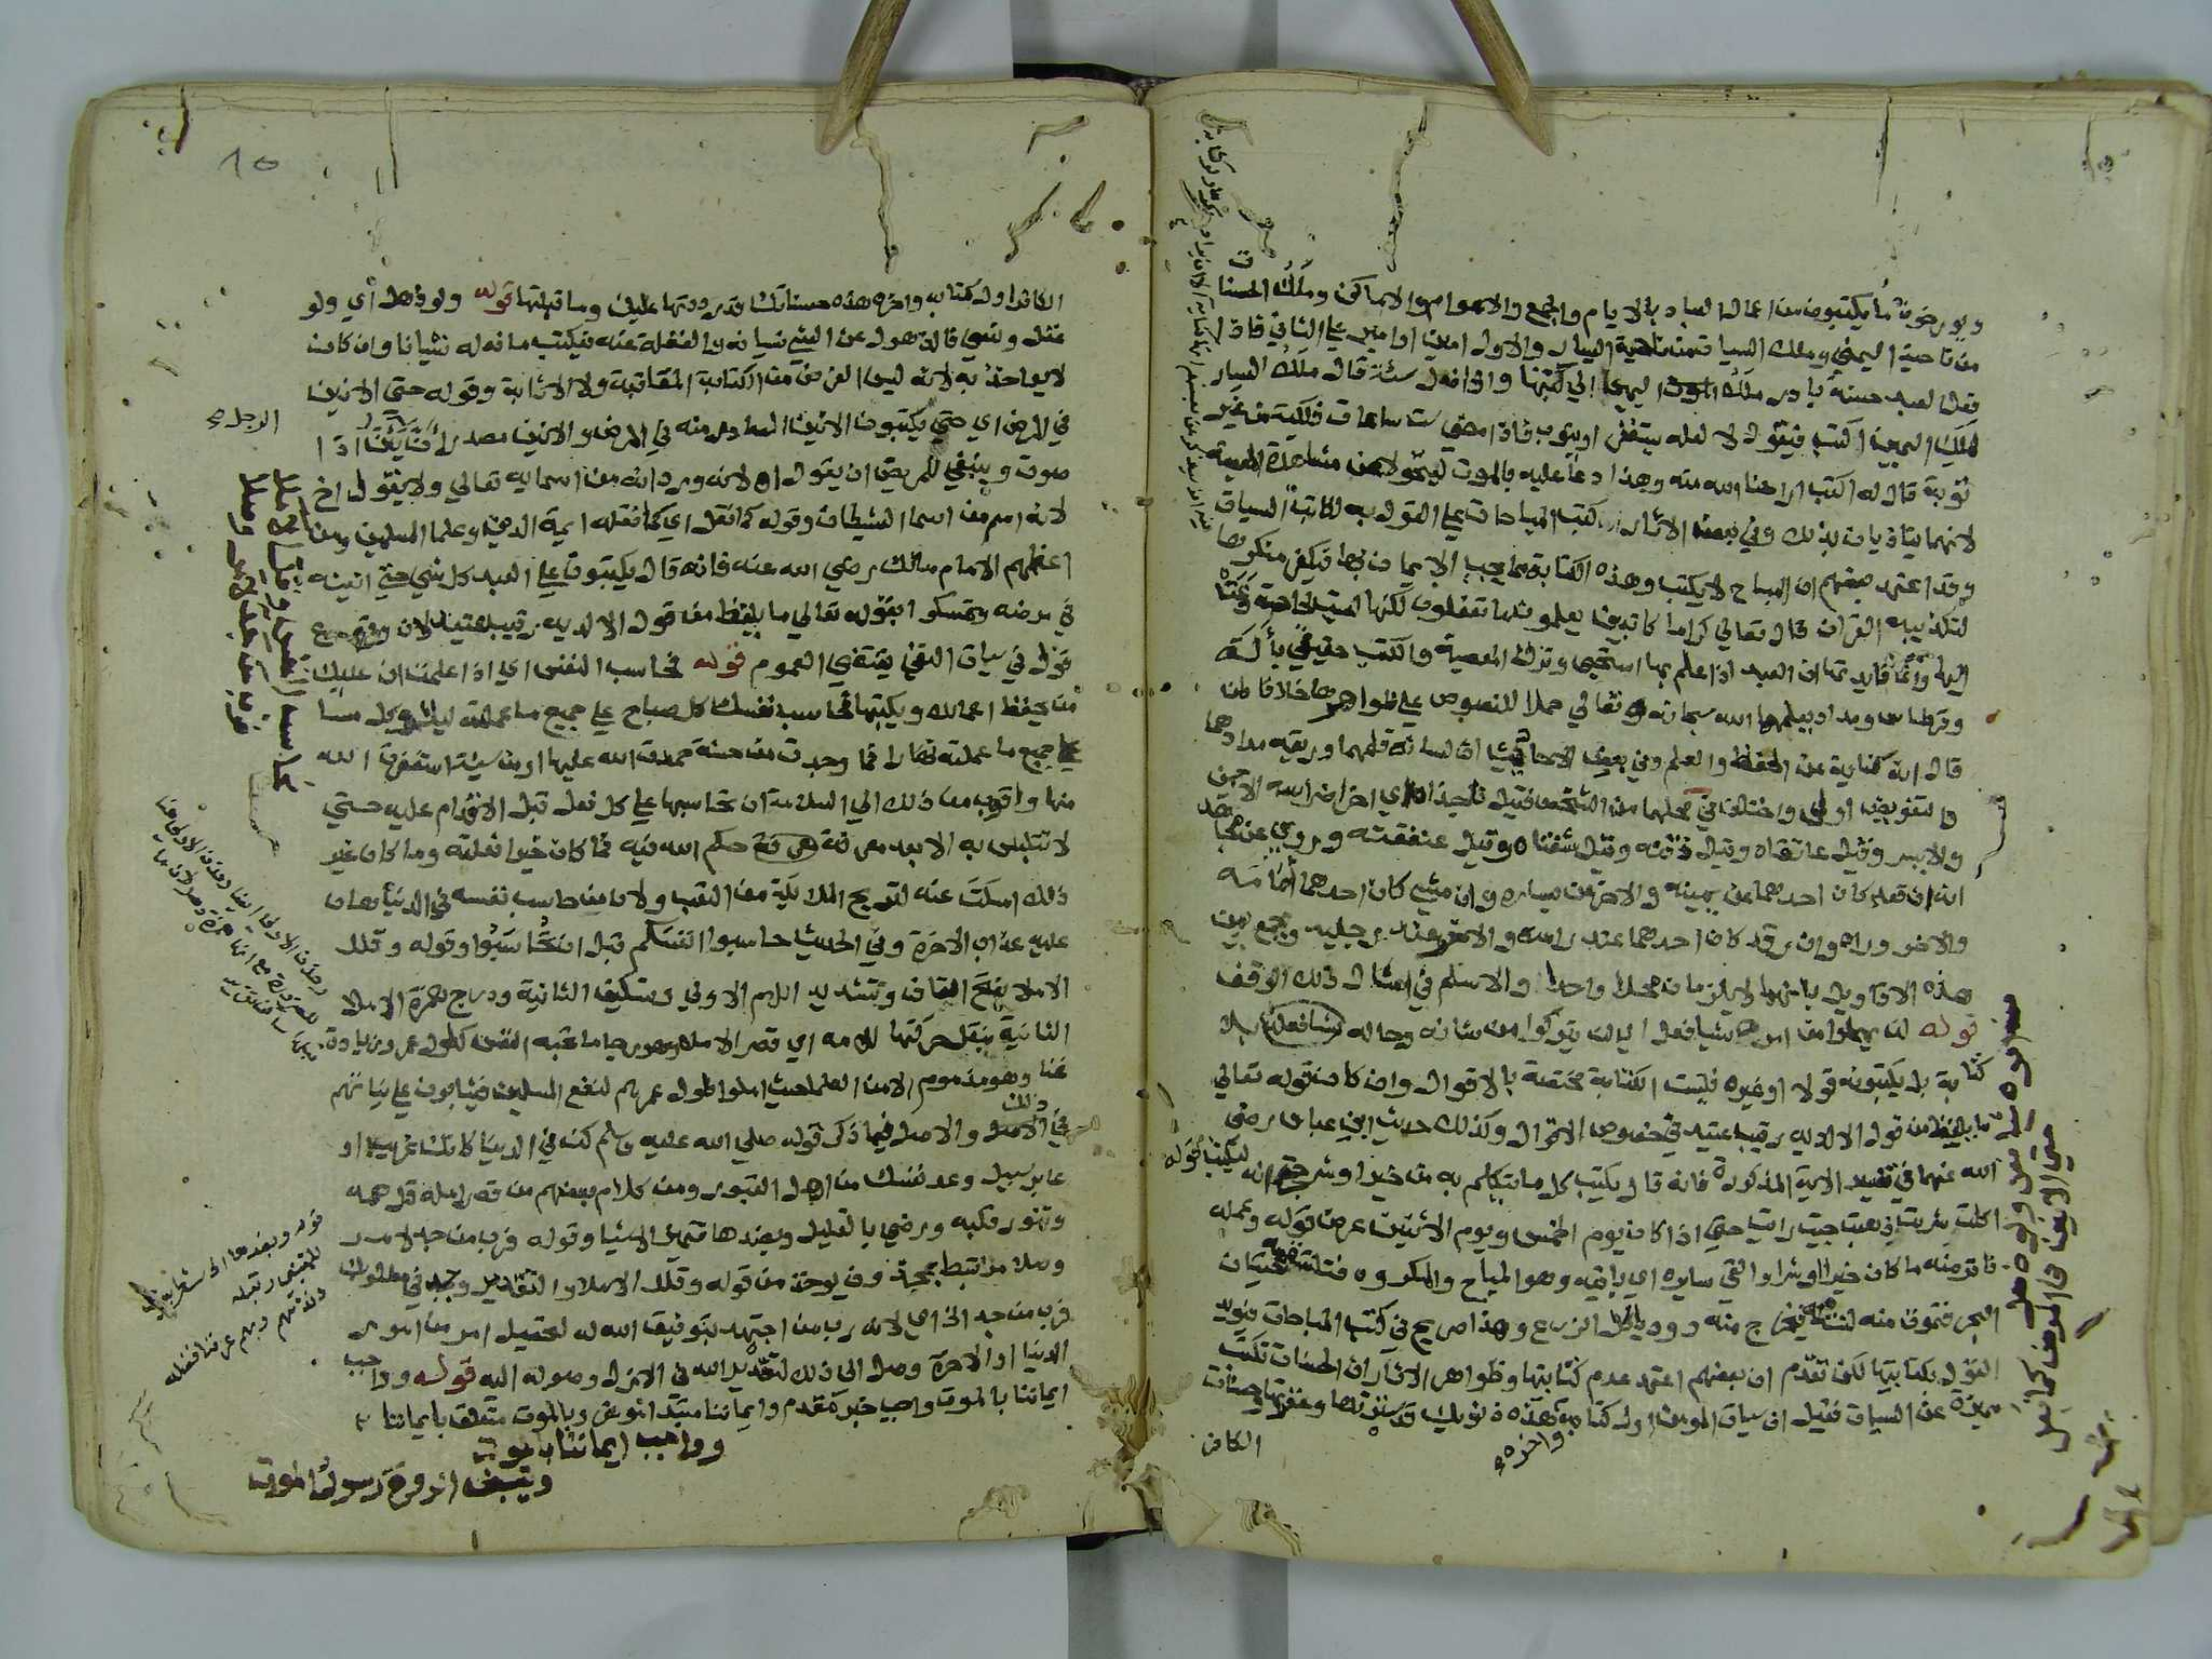 ويورخون ما يكتبون من اعمال العباد بالايام والجمع والاعوام والاماكن وملك الحسنات
من ناحية اليمين وملك السيات من ناحية اليسار والاول امين او امير على الثاني فاذا
فعل العبد حسنة بادر ملك اليمين الى كتبها واذا فعل سئة قال ملك اليسار
لملك اليمين اكتب فيقول لا لعله يستغفر او يتوب فاذا مضى ست ساعات فلكية من غير
توبة قال له اكتب اراحنا الله منه وهذا دعا عليه بالموت ليتحولا عن مشاهدة المعصية
لانهما يتاذيان بذلك وفي بعض الاثار ان كتب المباحات على القول به لكاتب السيات
وقد اعتمد بعضهم ان المباح لا يكتب وهذه الكتابة مما يجب الايمان بها فيكفر منكرها
لتكذيبه القران قال تعالى كراما كاتبين يعلمون ما تفعلون لكنها ليست لحاجة دعت
اليها وانما فايدتها ان العبد اذا علم بها استحيى وترك المعصية والكتب حقيقي بآلة
وقرطاس ومداد يعلمها الله سبحانه وتعالى حملا للنصوص على ظواهرها خلافا لمن
قال انه كناية عن الحفظ والعلم وفي بعض الاحاديث ان لسانه قلمهما وريقه مدادهما
والتفويض اولى واختلف في محلهما من الشخص فقيل ناجذاه اي اخر اضراسه الايمن
والايسر وقيل عاتقاه وقيل ذقنه وقيل شفتاه وقيل عنفقته وروي عن مجاهد
انه ان قعد كان احدهما عن يمينه والاخر عن يساره وان مشى كان احدهما امامه
والاخر وراه وان رقد كان احدهما عند راسه والاخر عند رجليه ويجمع بين
هذه الاقاويل بانهما لا يلزمان محلا واحدا والاسلم في امثال ذلك الوقف
قوله لن يهملوا من امره شيا فعل اي لن يتركوا من شانه وحاله شيا فعله بلا
كتابة بل يكتبونه قولا او غيره فليست الكتابة مختصة بالاقوال وان كان قوله تعالى
ما يلفظ من قول الا لديه رقيب عتيد في خصوص الاقوال وكذلك حديث ابن عباس رضي
الله عنهما في تفسير الاية المذكورة فانه قال يكتب كل ما يتكلم به من خير او شر حتى انه ليكتب قوله
اكلت شربت ذهبت جيت رايت حتى اذا كان يوم الخميس ويوم الاثنين عرض قوله وعمله
فاقر منه ما كان خيرا او شرا والقي سايره اي باقيه وهو المباح والمكروه فتلتقمه حيتان
البحر فتموت منه لنتنه فيخرج منه دود ياكل الزرع وهذا صريح في كتب المباحات فيويد
القول بكتابتها لكن تقدم ان بعضهم اعتمد عدم كتابتها وظواهر الاثار ان الحسنات تكتب
مميزة عن السيات فقيل ان سيات المومن اول كتابه واخره هذه ذنوبك قد سترتها وغفرتها وحسنات
الكافر
الكافر اول كتابه واخره هذه حسناتك قد رددتها عليك وما قبلتها قوله ولو ذهل اي ولو
غفل ونسي فالذهول عن الشي نسيانه والغفلة عنه فيكتب ما فعله نسيانا وان كان
لا يواخذ به لانه ليس الغرض من الكتابة المعاقبة ولا الاثابة وقوله حتى الانين
في المرض اي حتى يكتبون الانين الصادر منه في المرض والانين مصدر ان يئن اذا
صوت وينبغي للمريض ان يقول اه لانه ورد انه من اسمايه تعالى ولا يقول اخ
لانه اسم من اسما الشيطان وقوله كما نقل اي كما نقله ايمة الدين وعلما المسلمين ومن
اعظمهم الامام مالك رضي الله عنه فانه قال يكتبون على العبد كل شي حتى انينه
في مرضه وتمسكوا بقوله تعالى ما يلفظ من قول الا لديه رقيب عتيد لان وقوع
قول في سياق النفي يقتضي العموم قوله فحاسب النفس اي اذا علمت ان عليك
من يحفظ اعمالك ويكتبها فحاسب نفسك كل صباح على جميع ما عملته ليلا وكل مسا
على جميع ما عملته نهارا فما وجدت من حسنة حمدت الله عليها او من سيئة استغفرت الله
منها واقرب من ذلك الى السلامة ان تحاسبها على كل فعل قبل الاقدام عليه حتى
لا تتلبس به الا بعد معرفة حكم الله فيه فما كان خيرا فعلته وما كان غير
ذلك امسكت عنه لتريح الملايكة من التعب ولان من حاسب نفسه في الدنيا هان
عليه عذاب الاخرة وفي الحديث حاسبوا انفسكم قبل ان تحاسبوا وقوله وقلل
الاملا بفتح القاف وتشديد اللام الاولى وتسكين الثانية ودرج همزة الاملا
الثانية بنقل حركتها للام اي قصر الامل وهو رجا ما تحبه النفس كطول عمر وزيادة
غنا وهو مذموم الا من العلما حيث املوا طول عمرهم لنفع المسلمين فيثابون على نياتهم
في ذلك والاصل فيما ذكر قوله صلى الله عليه وسلم كن في الدنيا كانك غريب او
عابر سبيل وعد نفسك من اهل القبور ومن كلام بعضهم من قصر امله قل همه
وتنور قلبه ورضي بالقليل وبضدها تتميز الاشيا وقوله فرب من جد لامر
وصلا مرتبط بمحذوف يوخذ من قوله وقلل الاملا والتقدير وجد في مطلوبك
فرب من جد الخ اي لانه رب من اجتهد بتوفيق الله له لتحصيل امر من امور
الدنيا او الاخرة وصل الى ذلك لتقدير الله في الازل وصوله اليه قوله وواجب
ايماننا بالموت واجب خبر مقدم وايماننا مبتدا موخر وبالموت متعلق بايماننا
وواجب ايماننا بالموت
ويقبض الروح رسول الموت